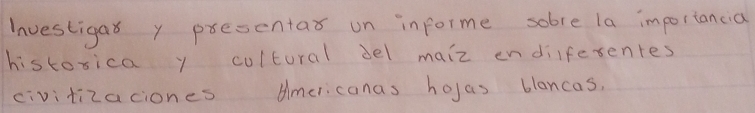 Investigar y presentar un informe sobre la importancia
historica y cultural del maíz en diiferentes
civitizaciones Americanas hojas blancas.